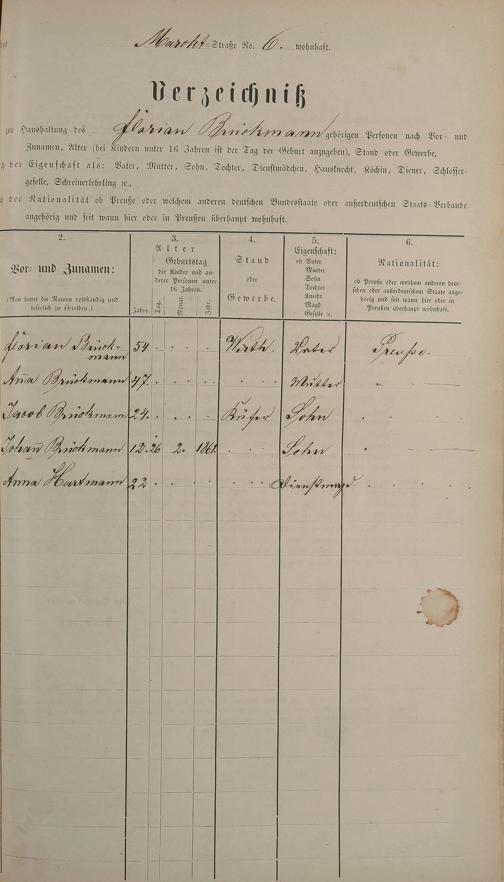 Marckt-Straße No. 6. wohnhaft.
Verzeichniß
zur Haushaltung des Florian Brückmann gehörigen Personen nach Vor- und
Zunamen, Alter (bei Kindern unter 16 Jahren ist der Tag der Geburt anzugeben), Stand oder Gewerbe,
der Eigenschaft als: Vater, Mutter, Sohn, Tochter, Dienstmädchen, Hausknecht, Köchin, Diener, Schlosser-
geselle, Schreinerlehrling ꝛc.,
der Nationalität ob Preuße oder welchem anderen deutschen Bundesstaate oder außerdeutschen Staats-Verbande
angehörig und seit wann hier oder in Preußen überhaupt wohnhaft.
2. 3. 4. 5. 6.
Vor- und Zunamen:
(Man bittet die Namen vollständig und
leserlich zu schreiben.)
Alter
Geburtstag
der Kinder und an-
derer Personen unter
16 Jahren.
Jahre. Tag. Monat. Jahr.
Stand
oder
Gewerbe.
Eigenschaft:
ob Vater
Mutter
Sohn
Tochter
Knecht
Magd
Geselle u.
Nationalität:
ob Preuße oder welchem anderen deut-
schen oder außerdeutschen Staate ange-
hörig und seit wann hier oder in
Preußen überhaupt wohnhaft.
Florian Brück-
mann 54. Wirth. Vater Preuße.
Anna Brückmann 47. Mutter "
Jacob Brückmann 24. Küfer Sohn "
Johann Brückmann 12. 26 2. 1861. Sohn "
Anna Hartmann 22 Dienstmagd.